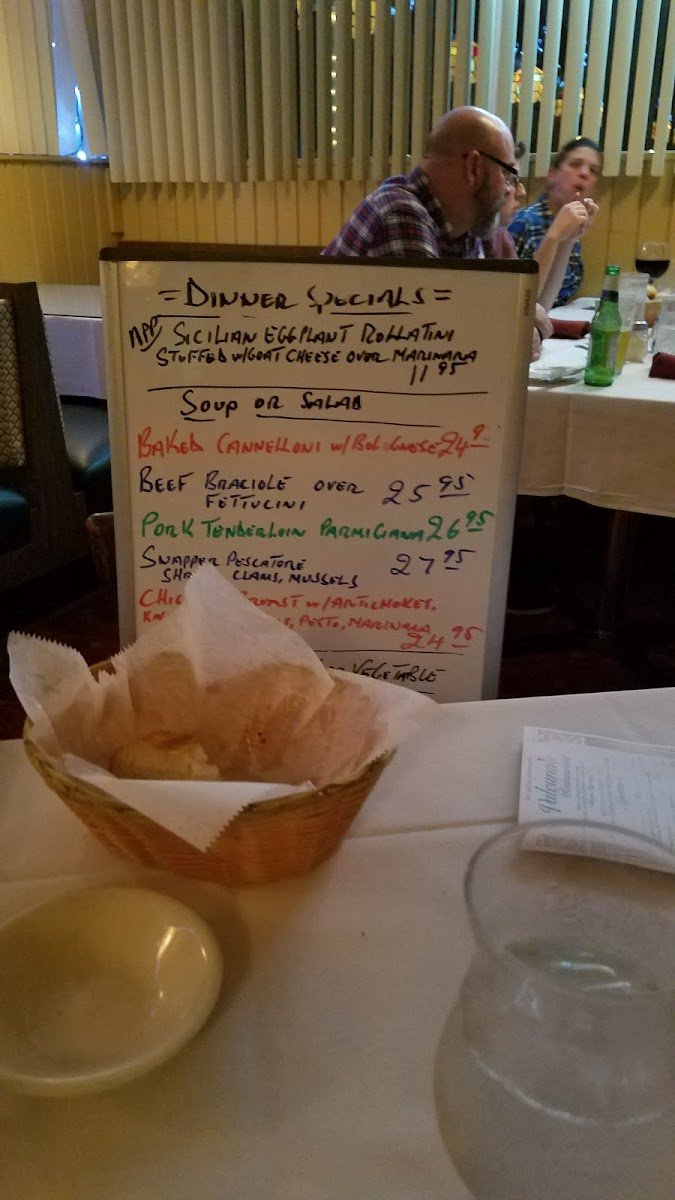 =DINNER SPECIALS=
APP SICILIAN EGGPLANT ROLLATINI
STUFFED W/GOAT CHEESE OVER MARINARA
11 95
SOUP OR SALAD
BAKED CANNELLONI W/BOLOGNESE 24
BEEF BRACIOLE OVER 25 95
FETTUCINI
PORK TENDERLOIN PARMIGIANA 26 95
SNAPPER PESCATORE 27 95
CLAMS, MUSSELS
BREAST W/ARTICHOKES,
PESTO, MARINARA
24 95
VEGETABLE